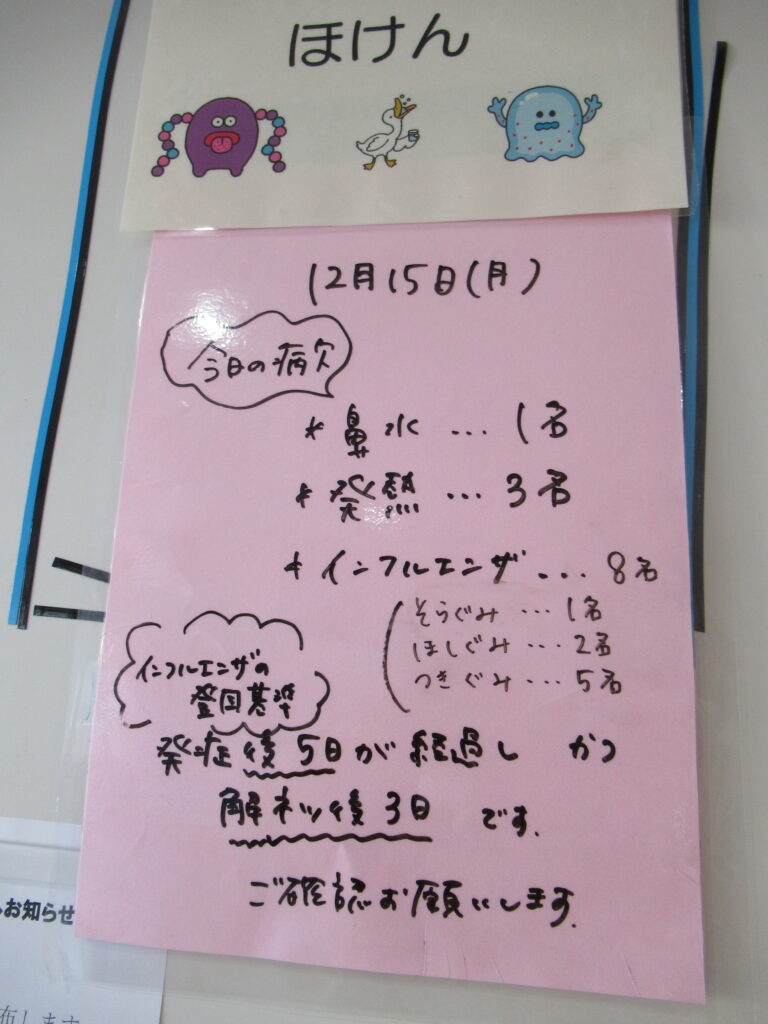 ほけん
12月15日(月)
今日の病欠
* 鼻水 ... 1名
* 発熱 ... 3名
* インフルエンザ ... 8名
(そらぐみ ... 1名
ほしぐみ ... 2名
つきぐみ ... 5名
インフルエンザの
登園基準
発症後5日が経過し かつ
解ネツ後3日 です.
ご確認お願いします.
お知らせ
布します